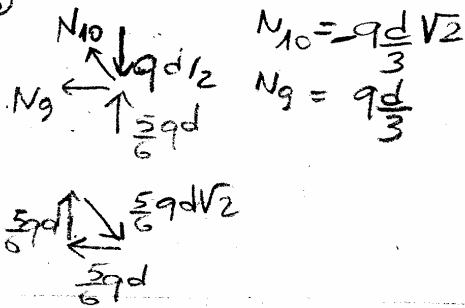 N₁₀
qd/2
N₉
5/6 qd
N₁₀ = -qd/3 √2
N₉ = qd/3
5/6 qd
5/6 qd√2
5/6 qd